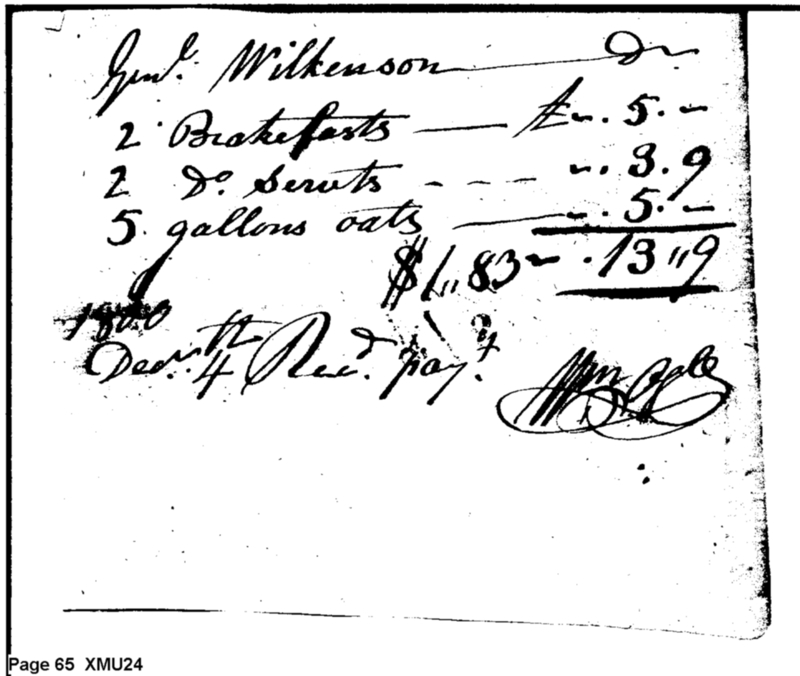 Genl. Wilkenson Dr
2 Brakefasts £ ". 5. "
2 Do. Servts ". 3. 9
5 gallons oats ". 5. "
$1,, 83 . 13 ,, 9
1800
Decr. 4th Recd. pay.t
Wm Ogle
Page 65 XMU24